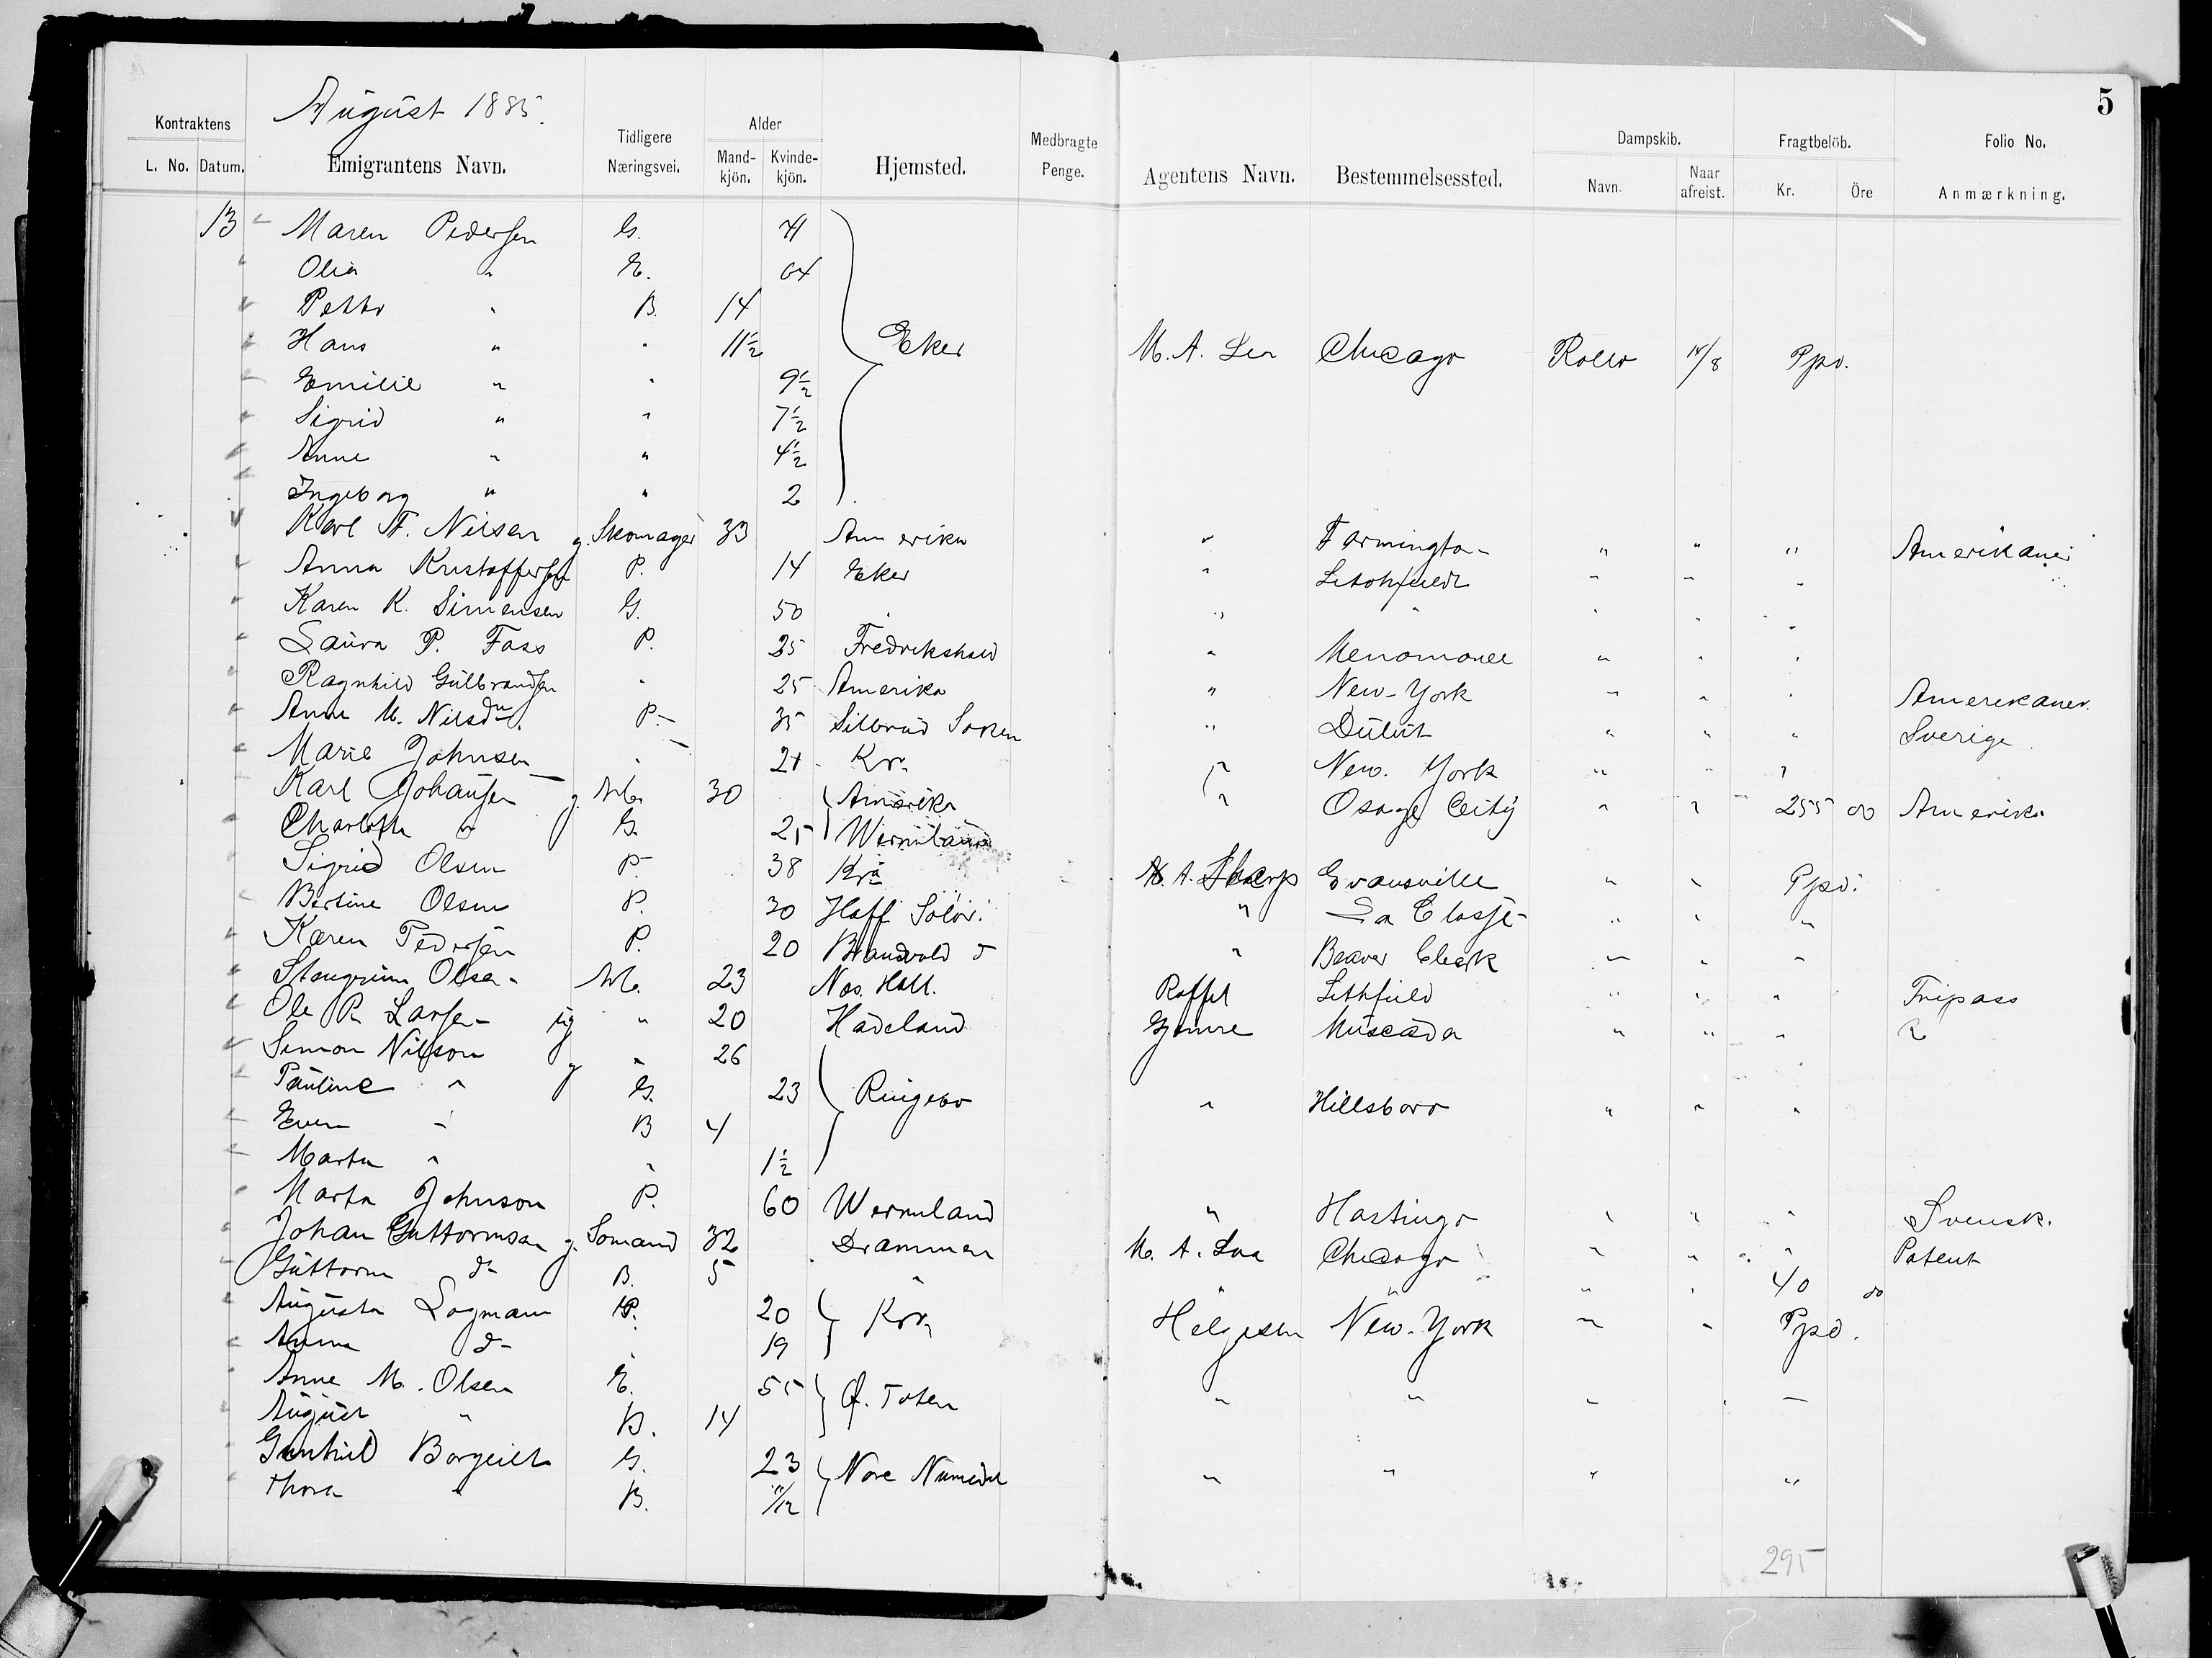 August 1885.
5
Kontraktens L. No. Datum. Emigrantens Navn. Tidligere Næringsvei. Alder Mand-kjön. Kvinde-kjön. Hjemsted. Medbragte Penge. Agentens Navn. Bestemmelsessted. Dampskib. Navn. Naar afreist. Fragtbelöb. Kr. Öre Folio No. Anmærkning.
13 Maren Pedersen G. 41
Olia " E. 64
Petter " B. 14
Hans " " 11½ Eker M. A. Lea Chicago Rollo 14/8 Ppd.
Emilie " " 9½
Sigrid " " 7½
Anne " " 4½
Ingeborg " " 2
Karl F. Nilsen g. Skomager 33 Amerika " Farmington " " " Amerikaner
Anna Kristoffersen P. 14 Eker " " " "
Karen K. Simensen G. 50 " " " " " "
Laura P. Foss P. 25 Fredrikshald " Menomonee " " "
Ragnhild Gulbrandsen " 25 Amerika " New-York " " " Amerikaner.
Anne M. Nilsdtr. P. 35 Silbrud Soken " Dulut " " " Sverige
Marie Johnsen " 21 Kr.a " New. York " " "
Karl Johansen g. Arb. 30 Amerika " Osage City " " 255 00 Amerika
Charlotte " G. 25 Wermland
Sigrid Olsen P. 38 Kra A. Sharp Evansville " " Ppd.
Bertine Olsen P. 30 Hoff Solör. " La Crosse " " "
Karen Pedersen P. 20 Brandvold do " Beaver Creek " " "
Stengrim Olsen Arb. 23 Nes. Hall. Roffel Lithfield " " " Fripass
Ole R. Larsen ug " 20 Hadeland Gjemre Muscada " " "
Simon Nilson g " 26
Pauline " G. 23 Ringebo " Hillsboro " " "
Even " B 4
Marta " " 1½
Marta Johnson P. 60 Wermland " Hastings " " " Svensk.
Johan Guttormsen g. Sömand 32 Drammen M. A. Lea Chicago " " " Patent
Guttorm do B. 5 " " " " " 40 00
Augusta Logmann P. 20 Kra Helgesen New-York " " Ppd.
Anna do " 19
Anne M. Olsen E. 55 Ø. Toten " " " " "
August " B. 14
Gunhild Borgeiet G. 23 Nore Numedal " " " "
Thora " B. 11/12
295